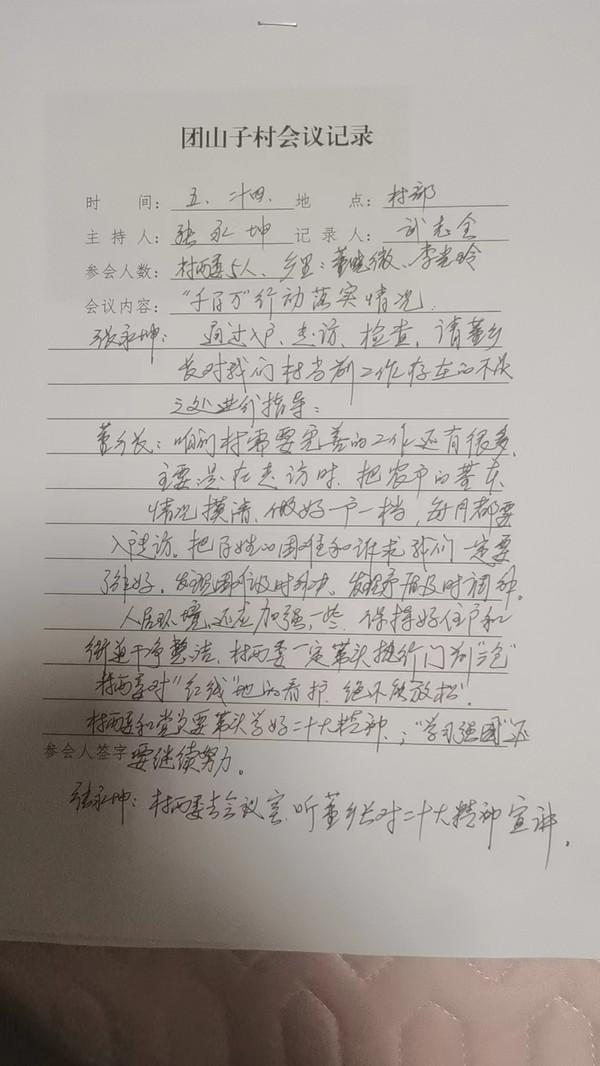 团山子村会议记录
时 间: 五、二十四、 地 点: 村部
主持人: 张永坤 记录人: 武志全
参会人数: 村两委5人、乡里:董晓微、李老玲
会议内容: "千百万"行动落实情况.
张永坤: 通过入户、走访、检查,请董乡
长对我们村当前工作存在的不足
之处进行指导:
董乡长:咱们村需要完善的工作还有很多,
主要是在走访时、把农户的基本
情况摸清、做好一户一档,每月都要
入户走访。把百姓的困难和诉求我们一定要
好、发现困难及时解决、发现矛盾及时调和。
人居环境,还应加强一些、保持好住户和
街道干净整洁、村两委一定带头执行门前"三包"
村两委对"红线"地的看护、绝不能放松、
村两委和党员要带头学好二十大精神、;"学习强国"还
参会人签字 要继续努力。
张永坤:村两委去会议室、听董乡长对二十大精神宣讲。